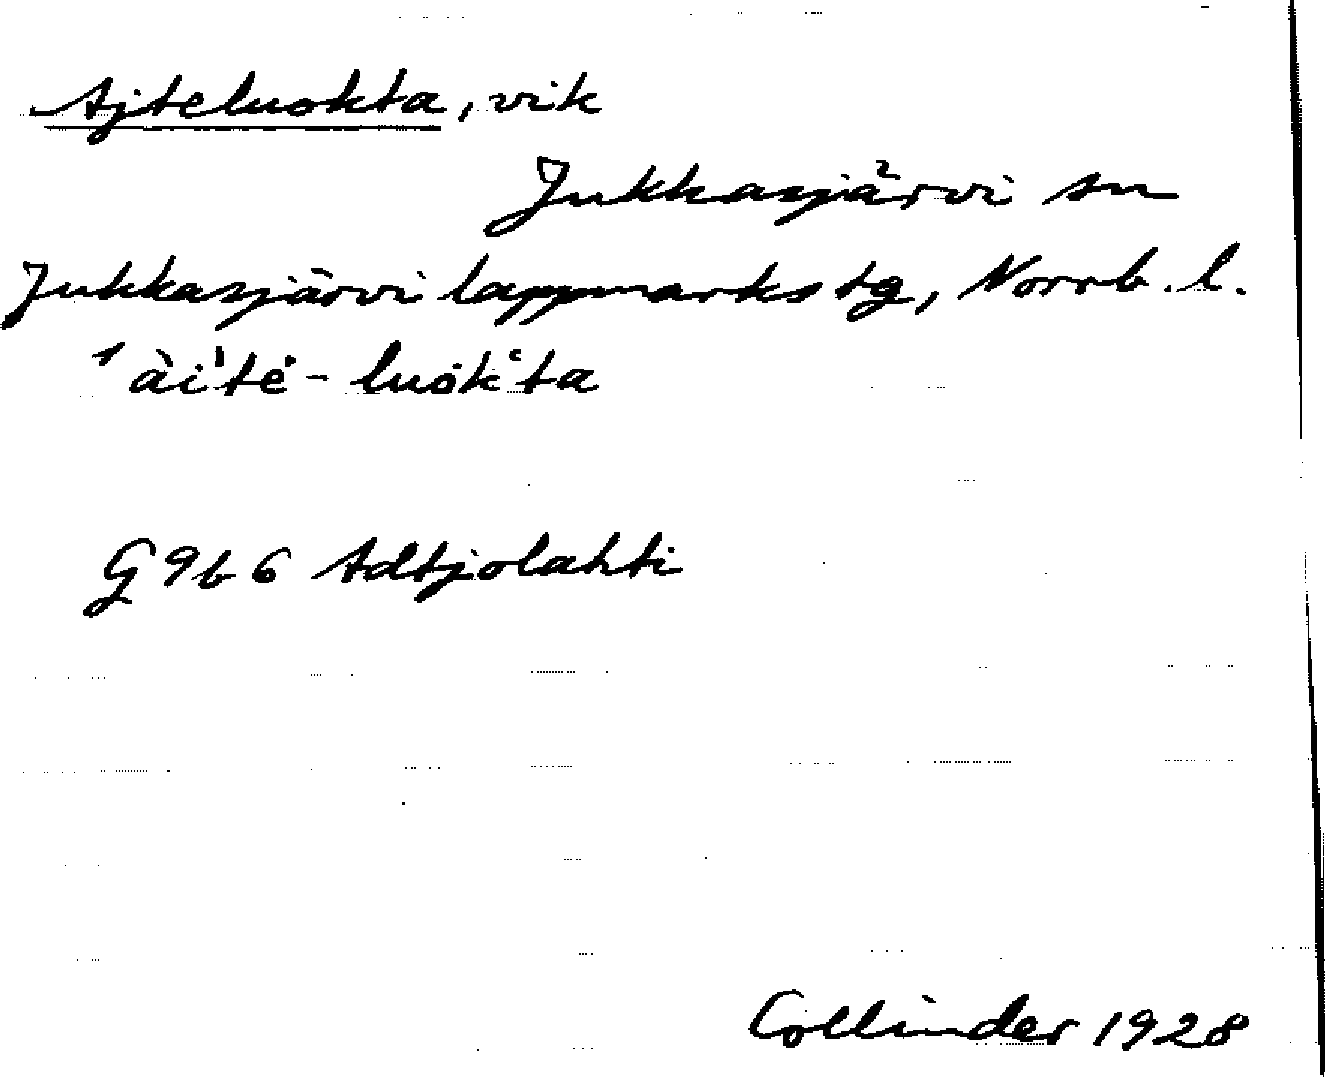 Ajteluokta, vik
Jukkasjärvi sn
Jukkasjärvi lappmarks tg, Norrb. l.
1 àiˈtė-luȯkʿta
G 9b 6 Adtjolahti
Collinder 1928